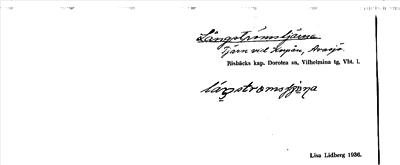 Långströmstjärne
Tjärn vid Kopån, Avasjö
Risbäcks kap. Dorotea sn, Vilhelmina tg, Vbt. l.
långstrømsʃjɛ̣ṇa
Lisa Lidberg 1936.